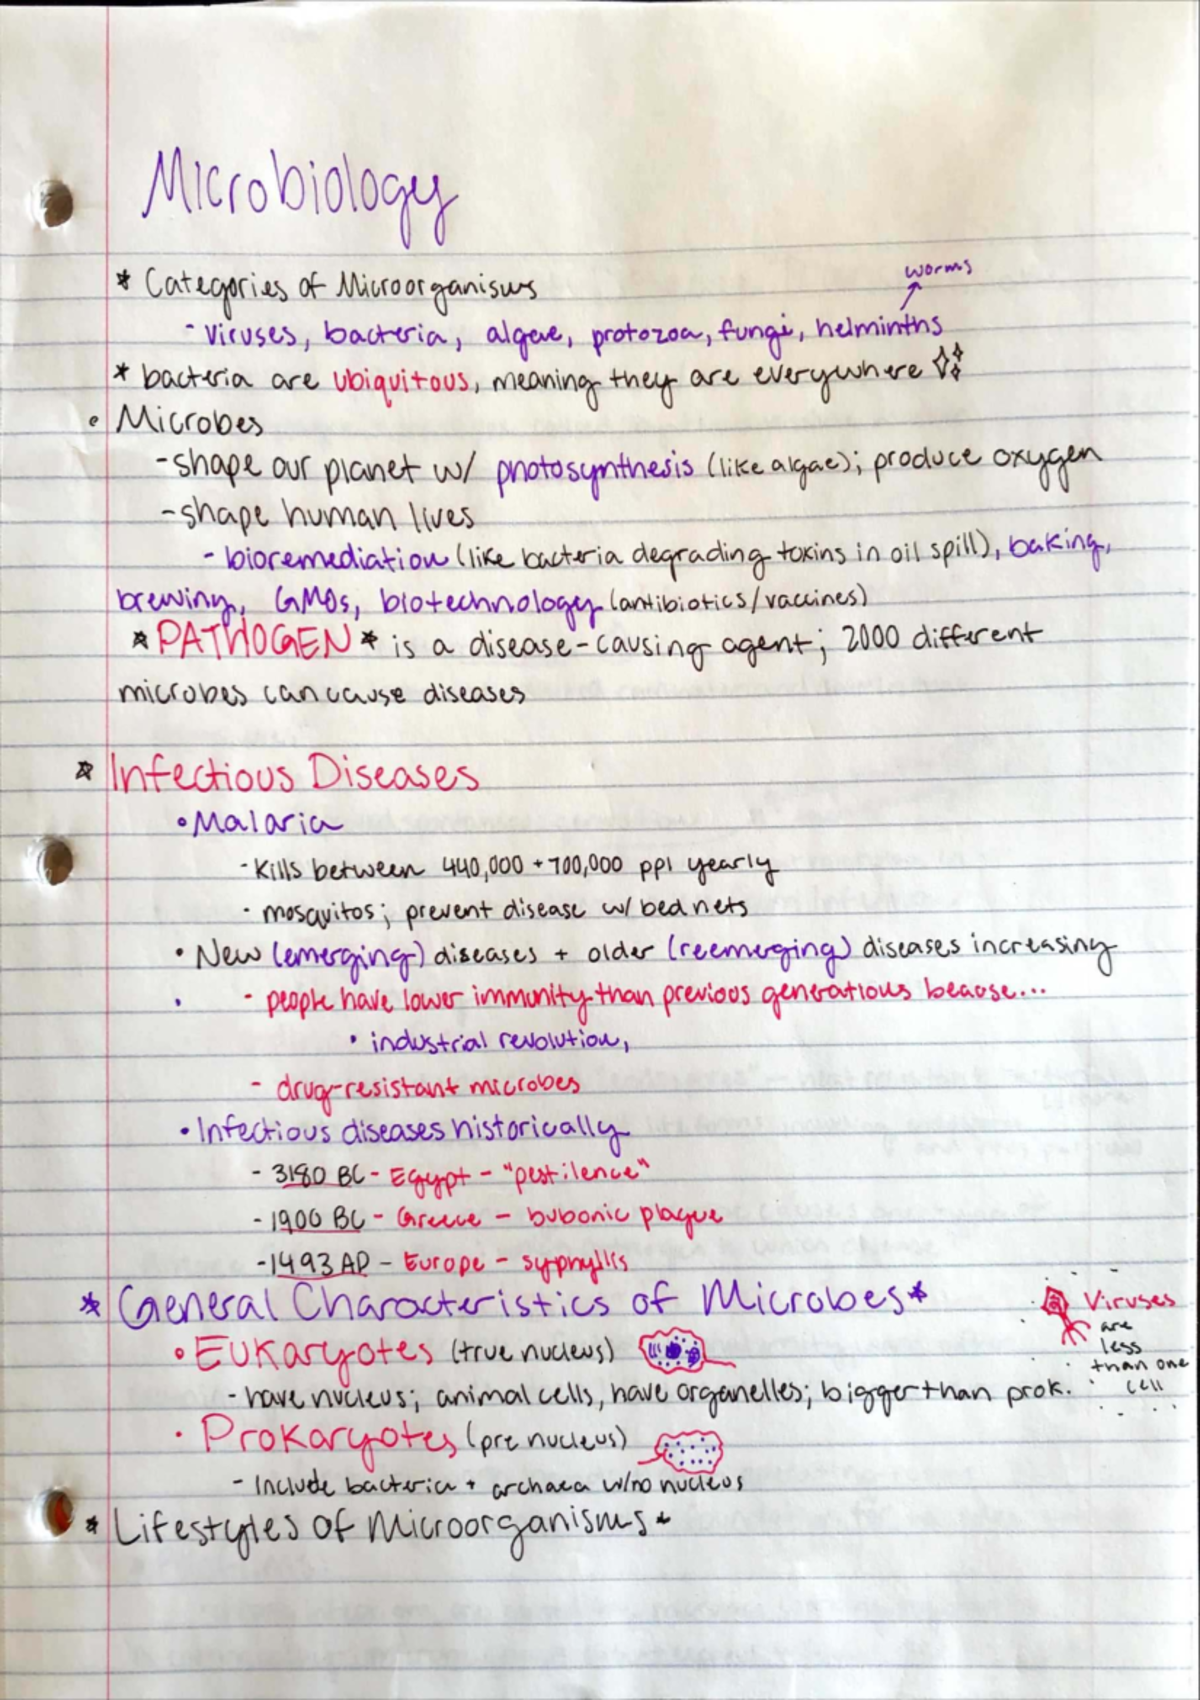 Microbiology
worms
* Categories of Microorganisms
- viruses, bacteria, algae, protozoa, fungi, helminths
* bacteria are ubiquitous, meaning they are everywhere
• Microbes
- shape our planet w/ photosynthesis (like algae); produce oxygen
- shape human lives
- bioremediation (like bacteria degrading toxins in oil spill), baking,
brewing, GMOs, biotechnology (antibiotics/vaccines)
* PATHOGEN * is a disease-causing agent; 2000 different
microbes can cause diseases
* Infectious Diseases
• Malaria
- Kills between 440,000 + 700,000 ppl yearly
- mosquitos; prevent disease w/ bed nets
• New (emerging) diseases + older (reemerging) diseases increasing
- people have lower immunity than previous generations becaose...
• industrial revolution,
- drug-resistant microbes
• Infectious diseases historically
- 3180 BC - Egypt - "pestilence"
- 1900 BC - Greece - bubonic plague
- 1493 AD - Europe - syphyllis
* General Characteristics of Microbes *
Viruses
are
less
than one
cell
• Eukaryotes (true nucleus)
- have nucleus; animal cells, have organelles; bigger than prok.
• Prokaryotes (pre nucleus)
- Include bacteria + archaea w/no nucleus
* Lifestyles of Microorganisms *